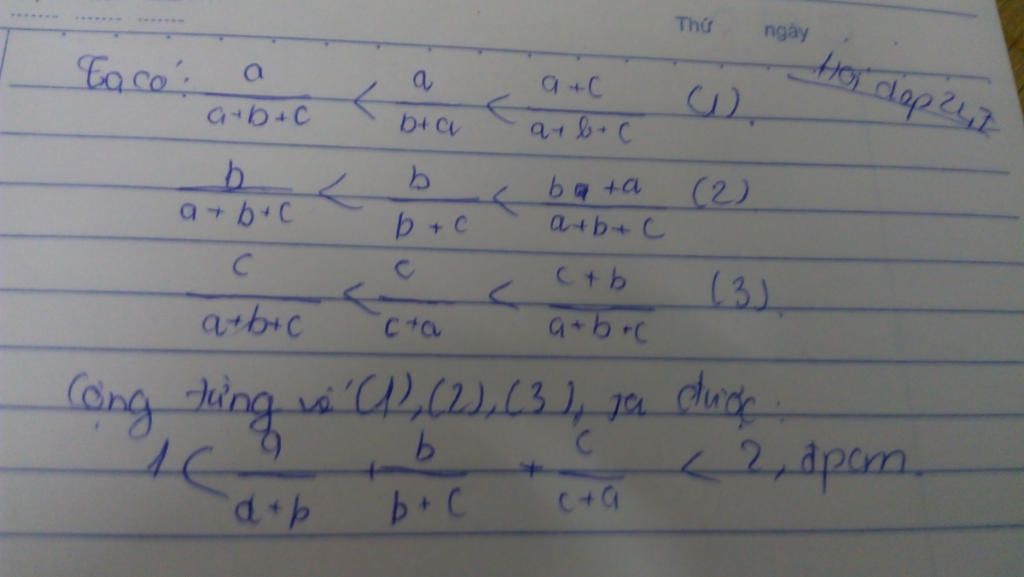 Thứ ngày
Hỏi đáp 247
Ta có: a/(a+b+c) < a/(b+a) < (a+c)/(a+b+c) (1).
b/(a+b+c) < b/(b+c) < (b+a)/(a+b+c) (2)
c/(a+b+c) < c/(c+a) < (c+b)/(a+b+c) (3).
Cộng từng vế (1), (2), (3), ta được:
1 < a/(a+b) + b/(b+c) + c/(c+a) < 2, đpcm.